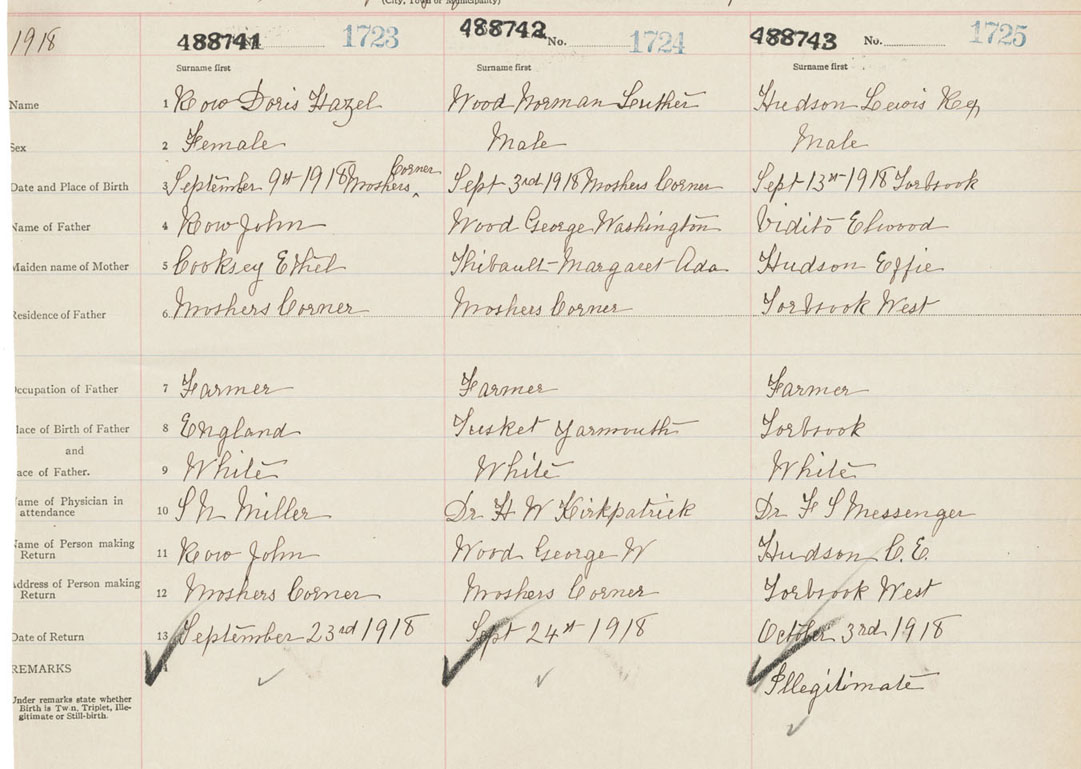 (City, Town or Municipality)
1918
488741 No. 1723 488742 No. 1724 488743 No. 1725
Surname first Surname first Surname first
Name 1 Row Doris Hazel Wood Norman Luther Hudson Lewis Reg
Sex 2 Female Male Male
Corner
Date and Place of Birth 3 September 9th 1918 Moshers ‸ Sept 3rd 1918 Moshers Corner Sept 13th 1918 Torbrook
Name of Father 4 Row John Wood George Washington Vidito Elwood
Maiden name of Mother 5 Cooksey Ethel Thibault Margaret Ada Hudson Effie
Residence of Father 6 Moshers Corner Moshers Corner Torbrook West
ccupation of Father 7 Farmer Farmer Farmer
lace of Birth of Father 8 England Tusket Yarmouth Torbrook
and
ace of Father. 9 White White White
ame of Physician in
attendance 10 S N Miller Dr H W Kirkpatrick Dr F S Messenger
Name of Person making
Return 11 Row John Wood George W Hudson C. E.
Address of Person making
Return 12 Moshers Corner Moshers Corner Torbrook West
Date of Return 13 September 23rd 1918 Sept 24th 1918 October 3rd 1918
REMARKS
Illegitimate
Under remarks state whether
Birth is Twin, Triplet, Ille-
gitimate or Still-birth.